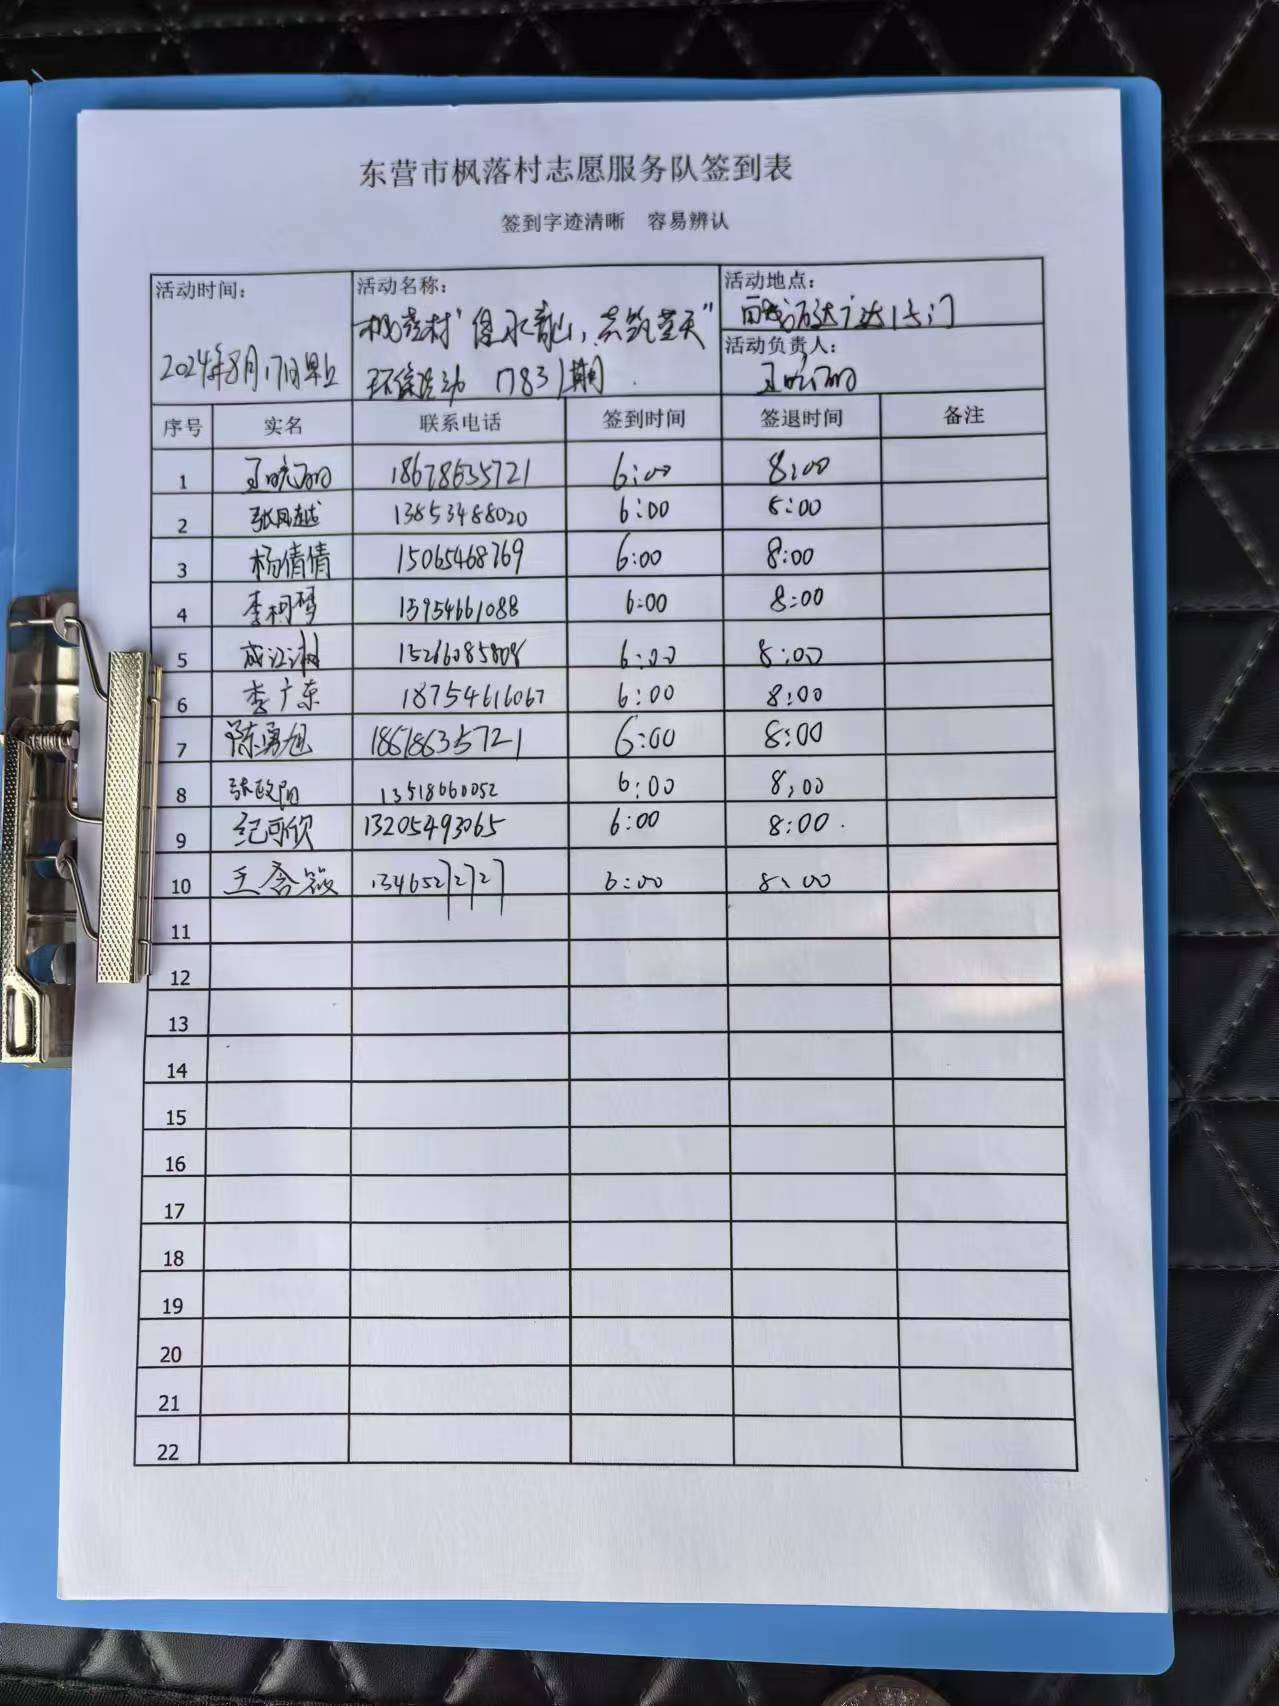 东营市枫落村志愿服务队签到表
签到字迹清晰 容易辨认
活动时间: 活动名称: 活动地点:
2024年8月17日早上
枫落村"绿水青山,共筑蓝天"
环保活动 1783期
万达广场1号门
活动负责人:
王晓丽
序号 实名 联系电话 签到时间 签退时间 备注
1 王晓丽 18678635721 6:00 8:00
2 张凤越 13853488020 6:00 8:00
3 杨倩倩 15065468769 6:00 8:00
4 李柯 15954661088 6:00 8:00
5 成江 6:00 8:00
6 李广东 18754616067 6:00 8:00
7 陈勇旭 18678635721 6:00 8:00
8 张政阳 13518660052 6:00 8:00
9 纪可欣 13205493065 6:00 8:00
10 王含筱 13465272727 6:00 8:00
11
12
13
14
15
16
17
18
19
20
21
22